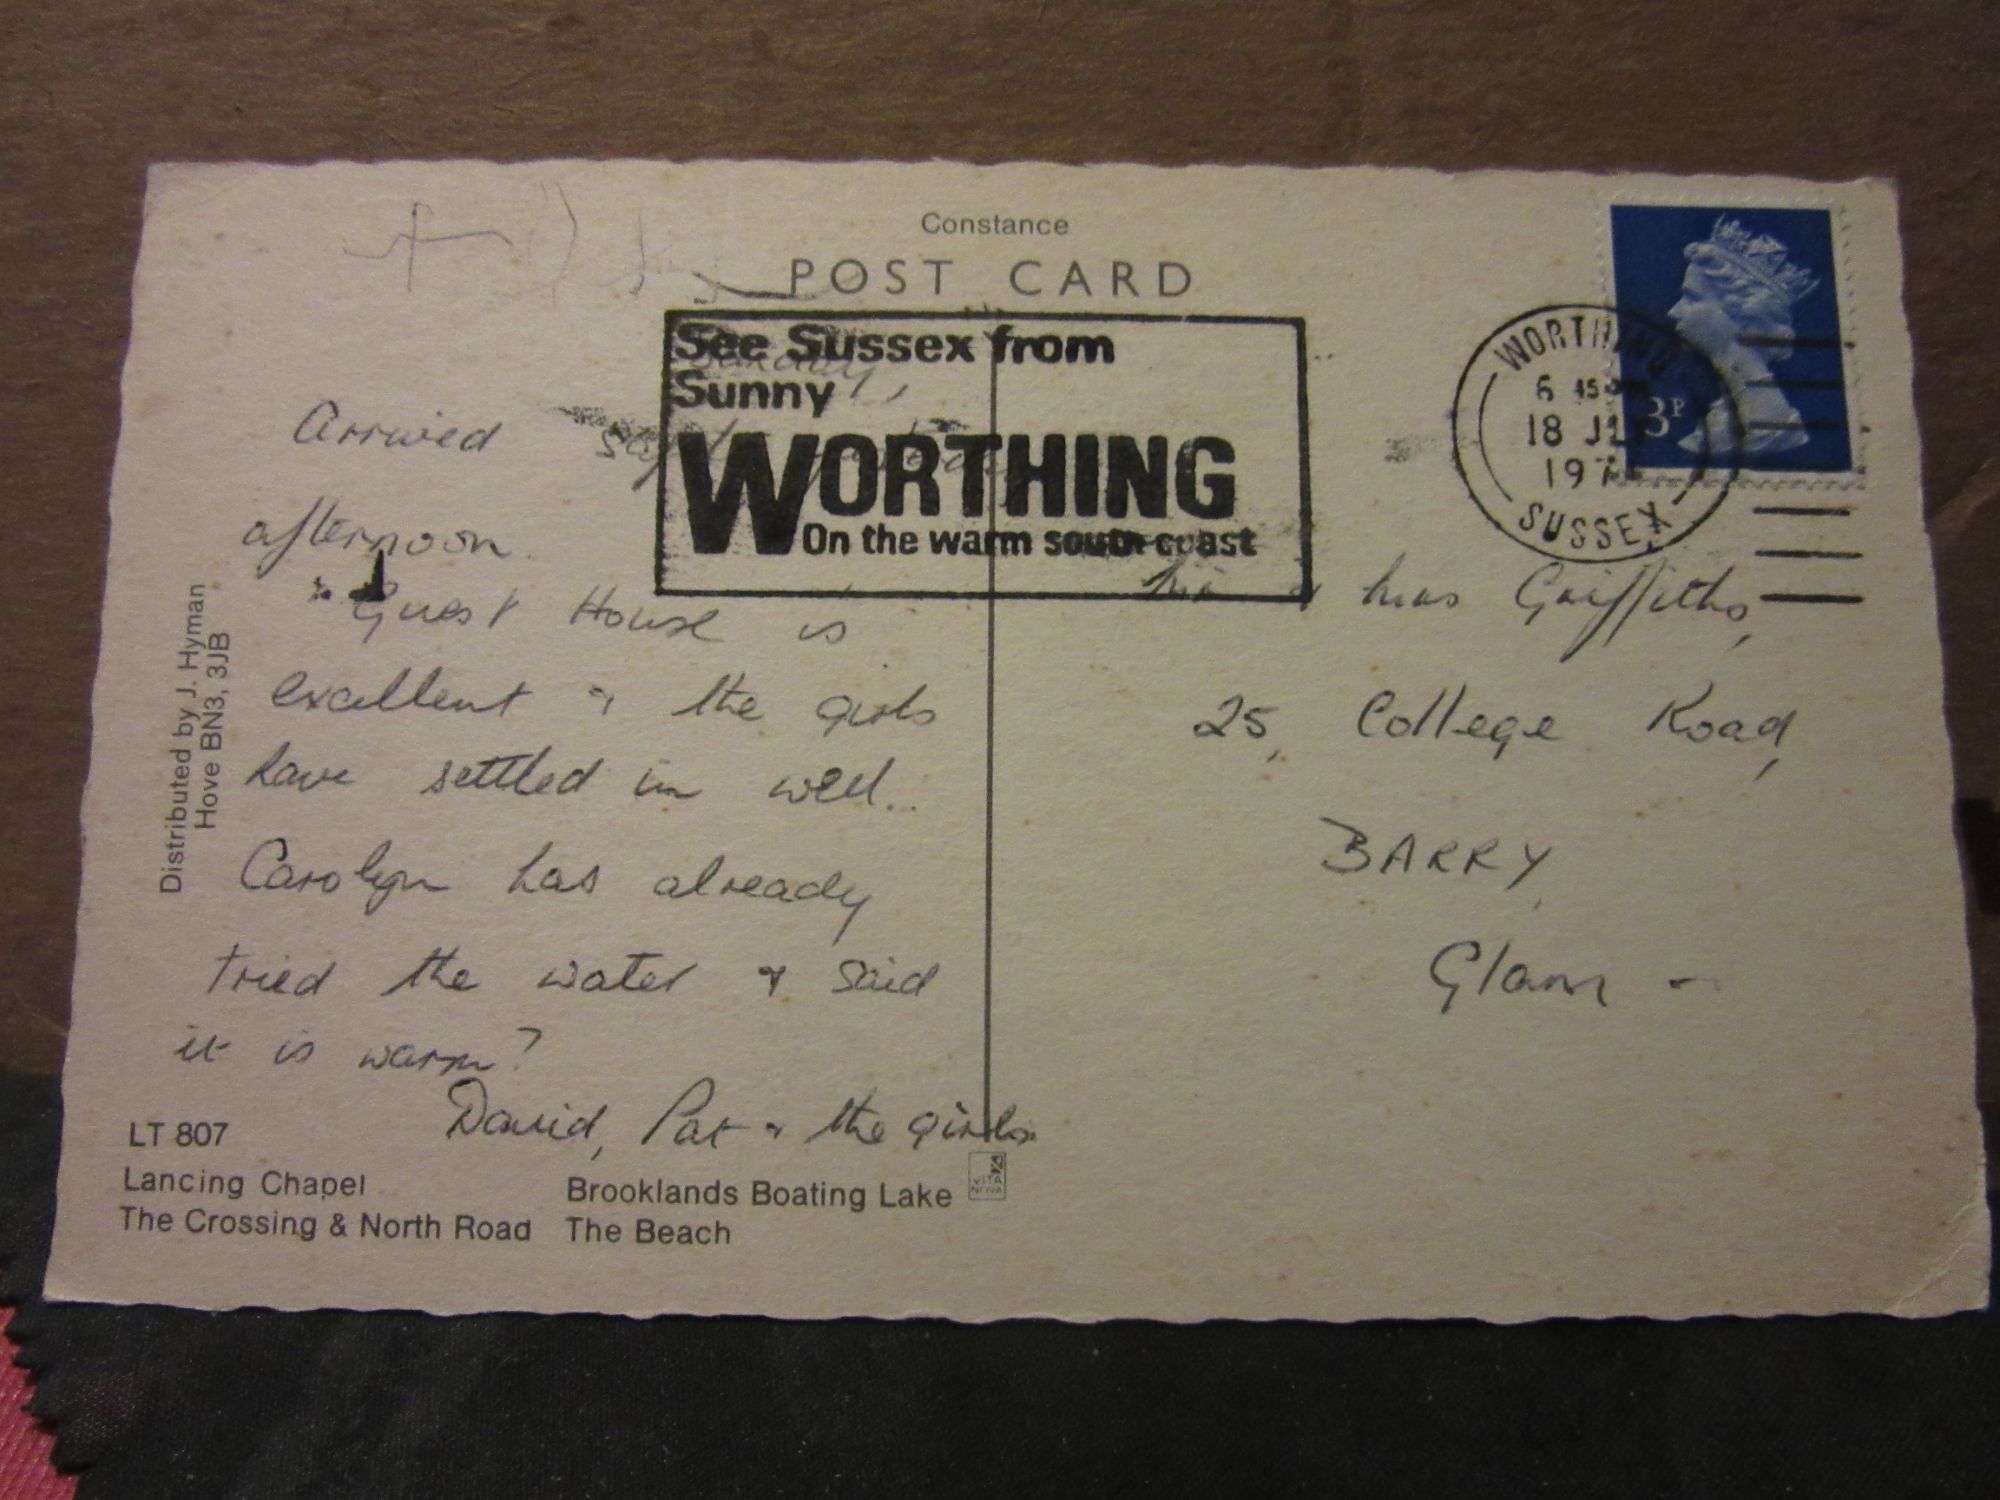 Constance
POST CARD
See Sussex from
Sunny
WORTHING
On the warm south coast
WORTHING
6 45
18 JL
197
SUSSEX
3P
Sunday,
Arrived safely
afternoon.
Guest House is
excellent & the girls
have settled in well..
Carolyn has already
tried the water & said
it is warm?
David, Pat & the girls.
Mr & Mrs Griffiths,
25, College Road,
BARRY,
Glam -
Distributed by J. Hyman
Hove BN3, 3JB
LT 807
Lancing Chapel
The Crossing & North Road
Brooklands Boating Lake
The Beach
VITA
NOVA